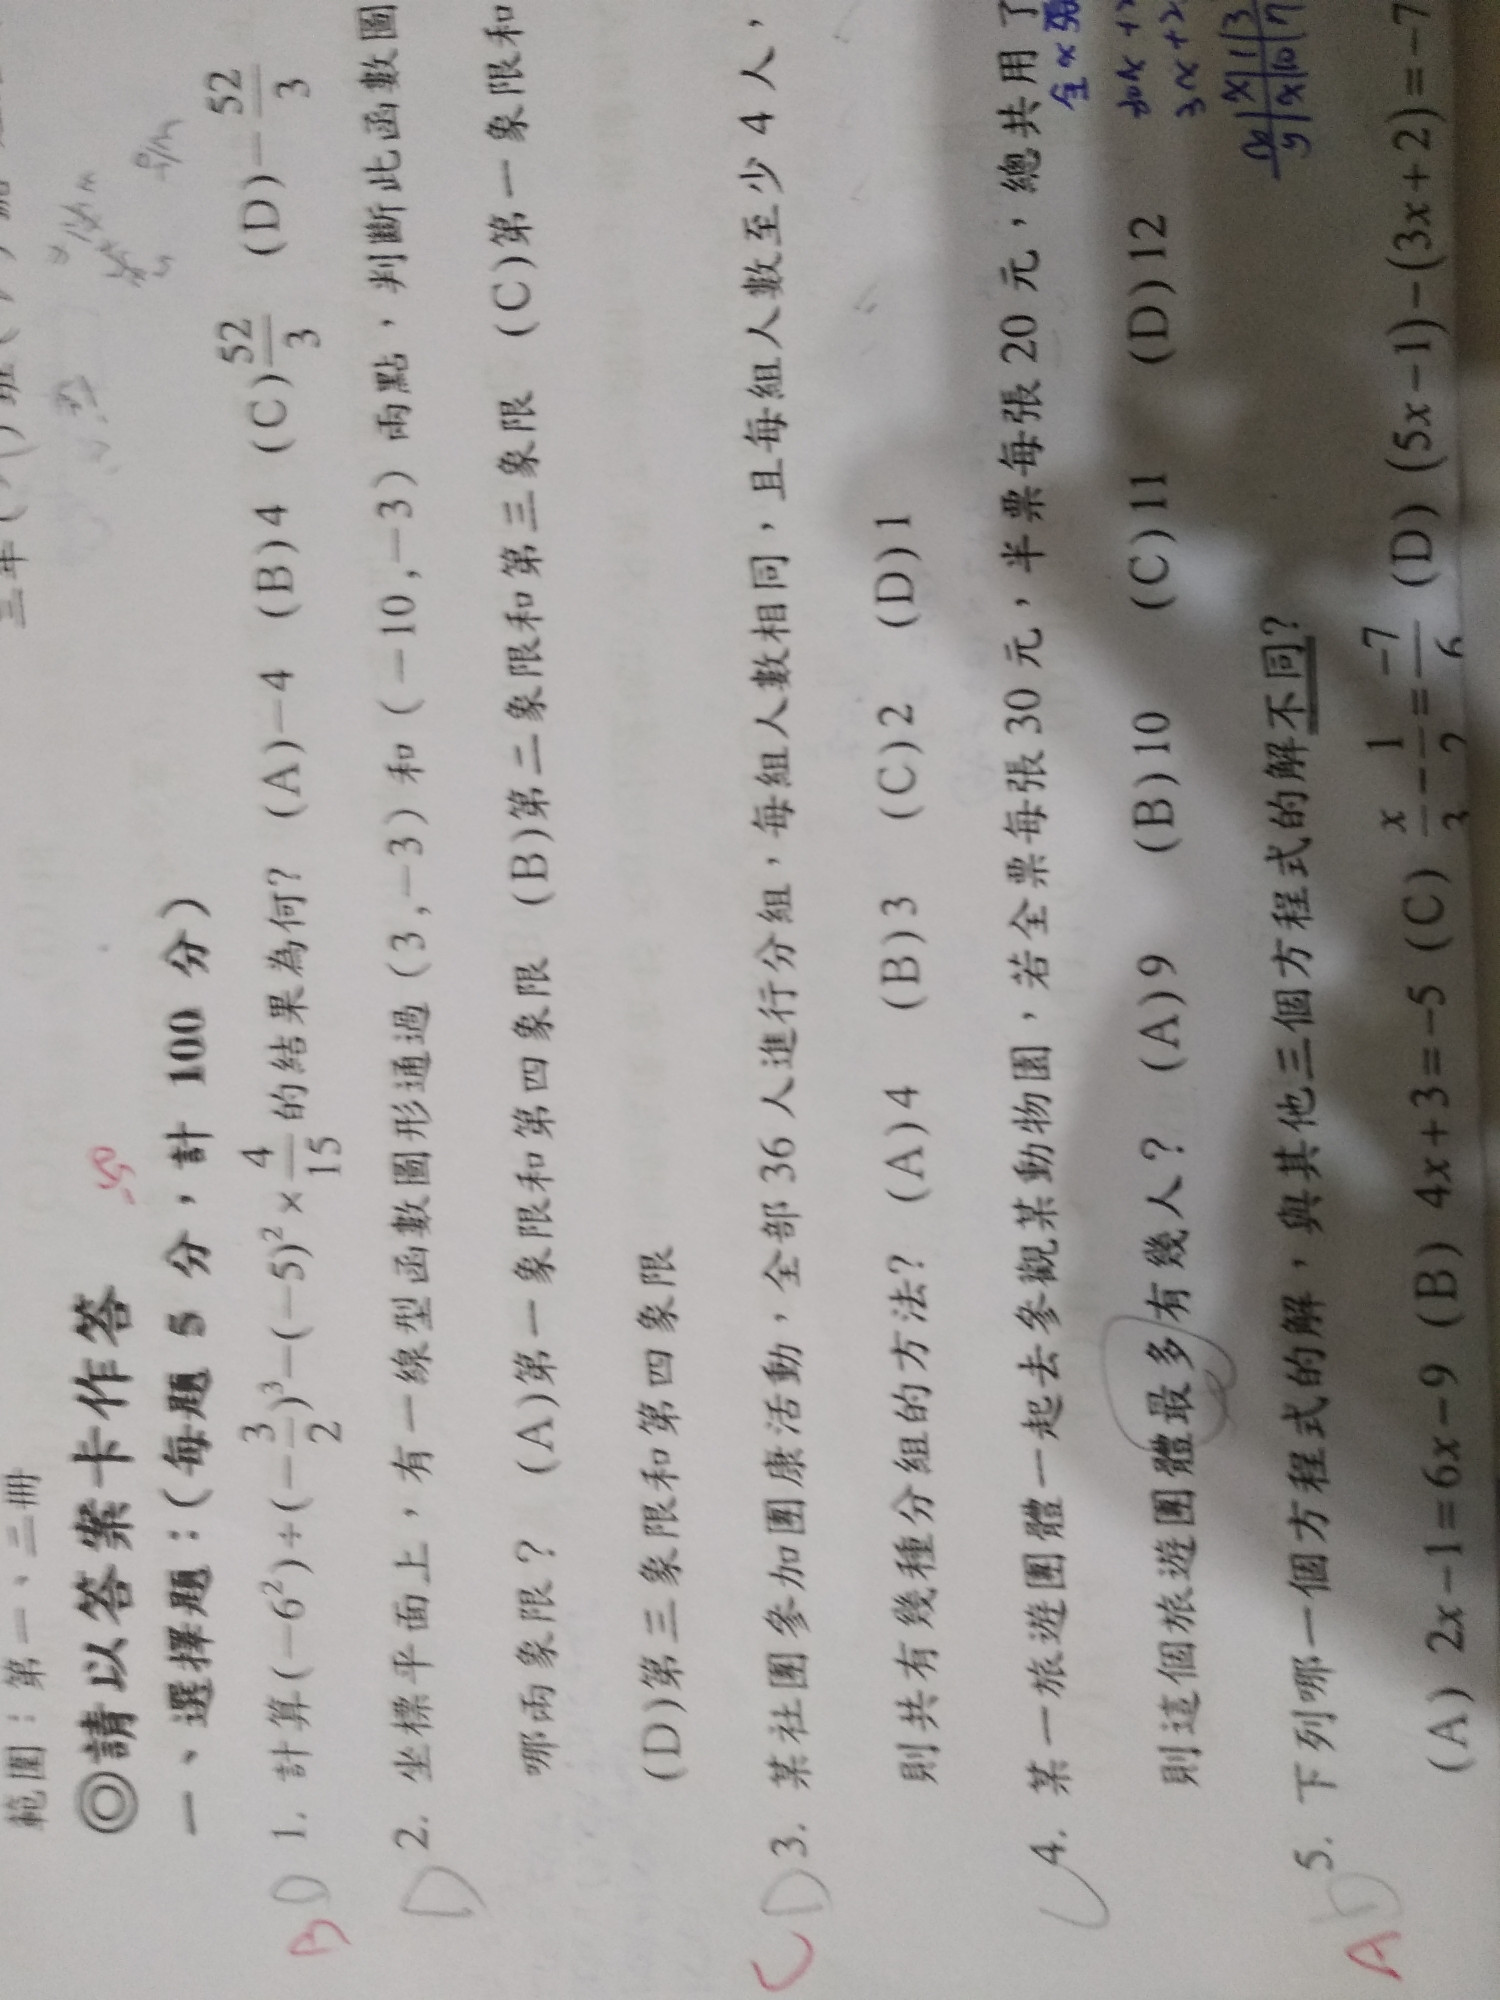 範圍：第一、二冊
◎請以答案卡作答
一、選擇題：(每題 5 分，計 100 分)
1. 計算(−6²)÷(−3/2)³−(−5)²×4/15的結果為何？ (A)−4 (B)4 (C)52/3 (D)−52/3
2. 坐標平面上，有一線型函數圖形通過(3,−3)和(−10,−3)兩點，判斷此函數圖
哪兩象限？ (A)第一象限和第四象限 (B)第二象限和第三象限 (C)第一象限和
(D)第三象限和第四象限
3. 某社團參加團康活動，全部 36 人進行分組，每組人數相同，且每組人數至少 4 人，
則共有幾種分組的方法？ (A)4 (B)3 (C)2 (D)1
4. 某一旅遊團體一起去參觀某動物園，若全票每張 30 元，半票每張 20 元，總共用了
則這個旅遊團體最多有幾人？ (A)9 (B)10 (C)11 (D)12
5. 下列哪一個方程式的解，與其他三個方程式的解不同？
(A) 2x−1=6x−9 (B) 4x+3=−5 (C) x/3−1/2=−7/6 (D) (5x−1)−(3x+2)=−7
B D
D
C D
A D